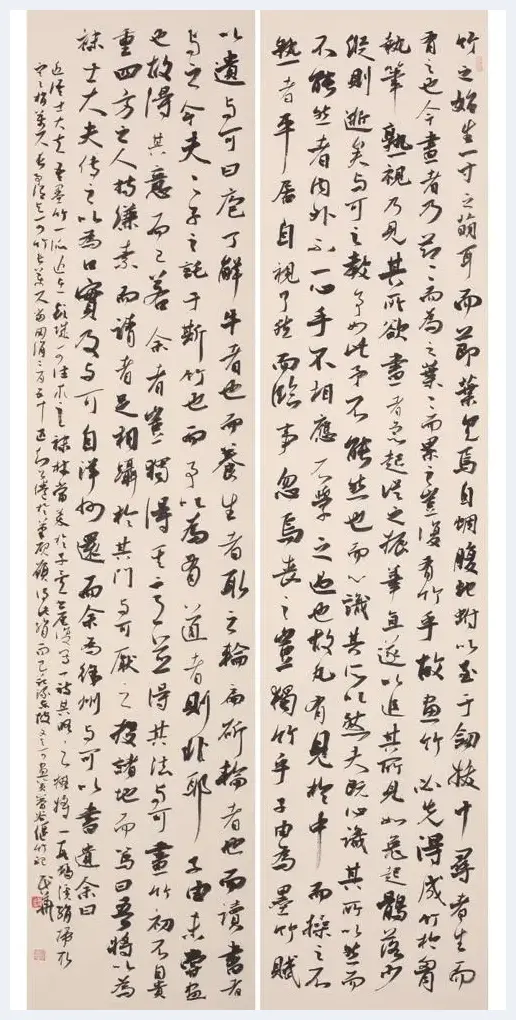 竹之始生一寸之萌耳而節葉具焉自蜩腹蛇蚹以至于劒拔十尋者生而
有之也今畫者乃節〻而為之葉〻而累之豈復有竹乎故畫竹必先得成竹於胷
執筆熟視乃見其所欲畫者急起從之振筆直遂以追其所見如兔起鶻落少
縱則逝矣與可之教予如此予不能然也而心識其所以然夫既心識其所以然而
不能然者內外不一心手不相應不學之過也故凡有見於中而操之不
熟者平居自視了然而臨事忽焉喪之豈獨竹乎子由為墨竹賦
以遺與可曰庖丁解牛者也而養生者取之輪扁斫輪者也而讀書者
與之今夫〻子之託于斯竹也而予以為有道者則非耶子由未嘗畫
也故得其意而已若余者豈獨得其意並得其法與可畫竹初不自貴
重四方之人持縑素而請者足相躡於其門與可厭之投諸地而罵曰吾將以為
襪士大夫傳之以為口實及與可自洋州還而余為徐州與可以書遺余曰
近語士大夫吾墨竹一派近在彭城可往求之襪材當萃於子矣書尾復寫一詩其略曰擬將一段鵝溪絹掃取
寒梢萬尺長予謂與可竹長萬尺當用絹二百五十匹知公倦於筆硯願得此絹而已錄東坡文與可畫筼簹谷偃竹記